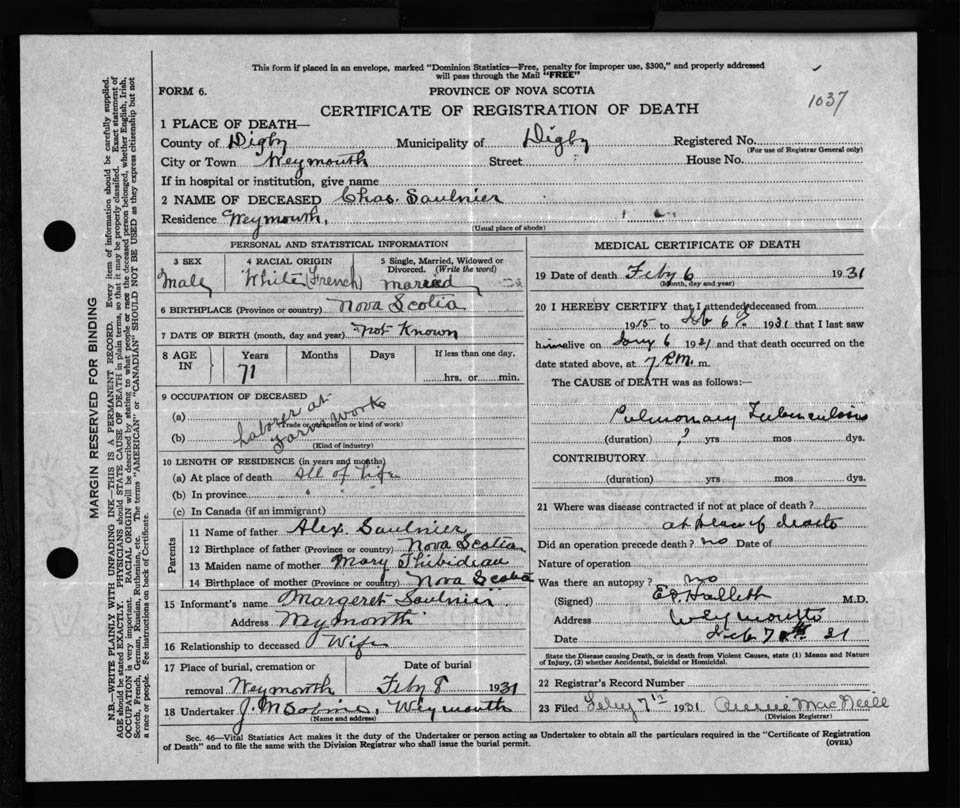 This form if placed in an envelope, marked "Dominion Statistics—Free, penalty for improper use, $300," and properly addressed
will pass through the Mail "FREE"
FORM 6.
PROVINCE OF NOVA SCOTIA
1037
CERTIFICATE OF REGISTRATION OF DEATH
1 PLACE OF DEATH—
County of Digby Municipality of Digby Registered No.
(For use of Registrar General only)
City or Town Weymouth Street House No.
If in hospital or institution, give name
2 NAME OF DECEASED Chas. Saulnier
Residence Weymouth,
(Usual place of abode)
PERSONAL AND STATISTICAL INFORMATION
3 SEX 4 RACIAL ORIGIN 5 Single, Married, Widowed or Divorced. (Write the word)
Male White (French) married
6 BIRTHPLACE (Province or country) Nova Scotia
7 DATE OF BIRTH (month, day and year) Not Known
8 AGE IN Years Months Days If less than one day.
71 hrs. or min.
9 OCCUPATION OF DECEASED
(a) Laborer at
(Trade or occupation or kind of work)
(b) Farm Work
(Kind of industry)
10 LENGTH OF RESIDENCE (in years and months)
(a) At place of death All of Life
(b) In province
(c) In Canada (if an immigrant)
Parents
11 Name of father Alex. Saulnier
12 Birthplace of father (Province or country) Nova Scotia
13 Maiden name of mother Mary Thibideau
14 Birthplace of mother (Province or country) Nova Scotia
15 Informant's name Margeret Saulnier
Address Weymouth
16 Relationship to deceased Wife
17 Place of burial, cremation or Date of burial
removal Weymouth Feby 8 1931
18 Undertaker J. M Weymouth
(Name and address)
MEDICAL CERTIFICATE OF DEATH
19 Date of death Feby 6 1931
(Month, day and year)
20 I HEREBY CERTIFY that I attended deceased from
1915 to Feb 6 1931 that I last saw
him alive on 6 1931 and that death occurred on the
date stated above, at 7 P.M. m.
The CAUSE of DEATH was as follows:—
Pulmonary Tuberculosis
(duration) ? yrs mos dys.
CONTRIBUTORY
(duration) yrs mos dys.
21 Where was disease contracted if not at place of death?
at place of death
Did an operation precede death? no Date of
Nature of operation
Was there an autopsy? no
(Signed) Hallett M.D.
Address Weymouth
Date Feb 7th 31
State the Disease causing Death, or in death from Violent Causes, state (1) Means and Nature
of Injury, (2) whether Accidental, Suicidal or Homicidal.
22 Registrar's Record Number
23 Filed Feby 7th 1931 MacNeill
(Division Registrar)
Sec. 46—Vital Statistics Act makes it the duty of the Undertaker or person acting as Undertaker to obtain all the particulars required in the "Certificate of Registration
of Death" and to file the same with the Division Registrar who shall issue the burial permit. (OVER)
MARGIN RESERVED FOR BINDING
N.B.—WRITE PLAINLY WITH UNFADING INK—THIS IS A PERMANENT RECORD. Every item of information should be carefully supplied.
AGE should be stated EXACTLY. PHYSICIANS should STATE CAUSE OF DEATH in plain terms, so that it may be properly classified. Exact statement of
OCCUPATION is very important. RACIAL ORIGIN will be described by stating to what people or race the deceased person belonged, whether English, Irish,
Scotch, French, German, Russian, Ruthenian, etc. The terms "AMERICAN" or "CANADIAN" SHOULD NOT BE USED as they express citizenship but not
a race or people. Fee instructions on back of Certificate.